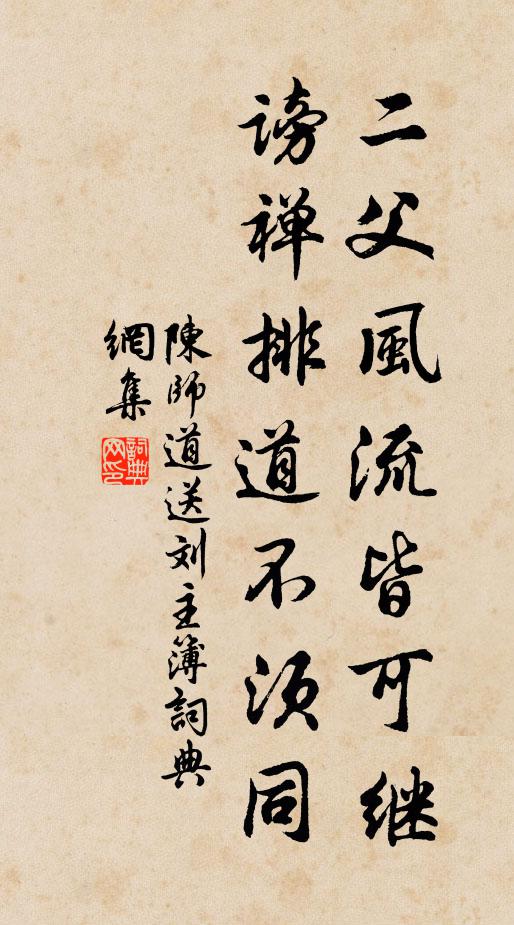 二父風流皆可继
謗禅排道不须同
陳師道送刘主簿詞典
網集
詞典网印